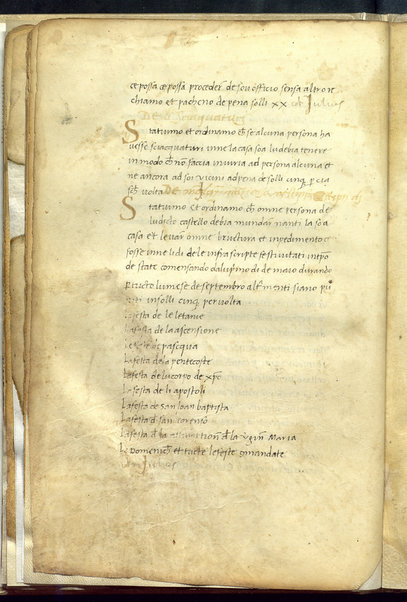 ce possa ce possa proceder de so officio sensa altro re
chiamo et pacheno de pena solli xx Julius
De li sciaquaturi
Statuimo et ordinamo che se alcuna persona ha
vesse sciacquaturi inne la casa soa lu debia tenere
in modo che non faccia iniuria ad persona alcuna et
ne ancora ad soi vicini ad pena de solli cinque per cia
sche volta
Statuimo et ordinamo che omne persona de
lu dicto castello debia mundar nanti la soa
casa et levar omne bructura et inpedimento che
fosse inne li di de le infrascripte festivitati in tpo
de state comensando da lu primo di de maio durando
per tucto lu mese de septembro altramenti siano pu
niti in solli cinque per volta
La festa de le letanie
La festa de la ascensione
Le feste de pasqua
La festa de la pentecoste
La festa de lu corpo de xpo
La festa de li apostoli
La festa de san Ioan baptista
La festa de san Lorenso
La festa de la assumtione de la vgin Maria
Le Domeniche et tucte le feste comandate
Julius